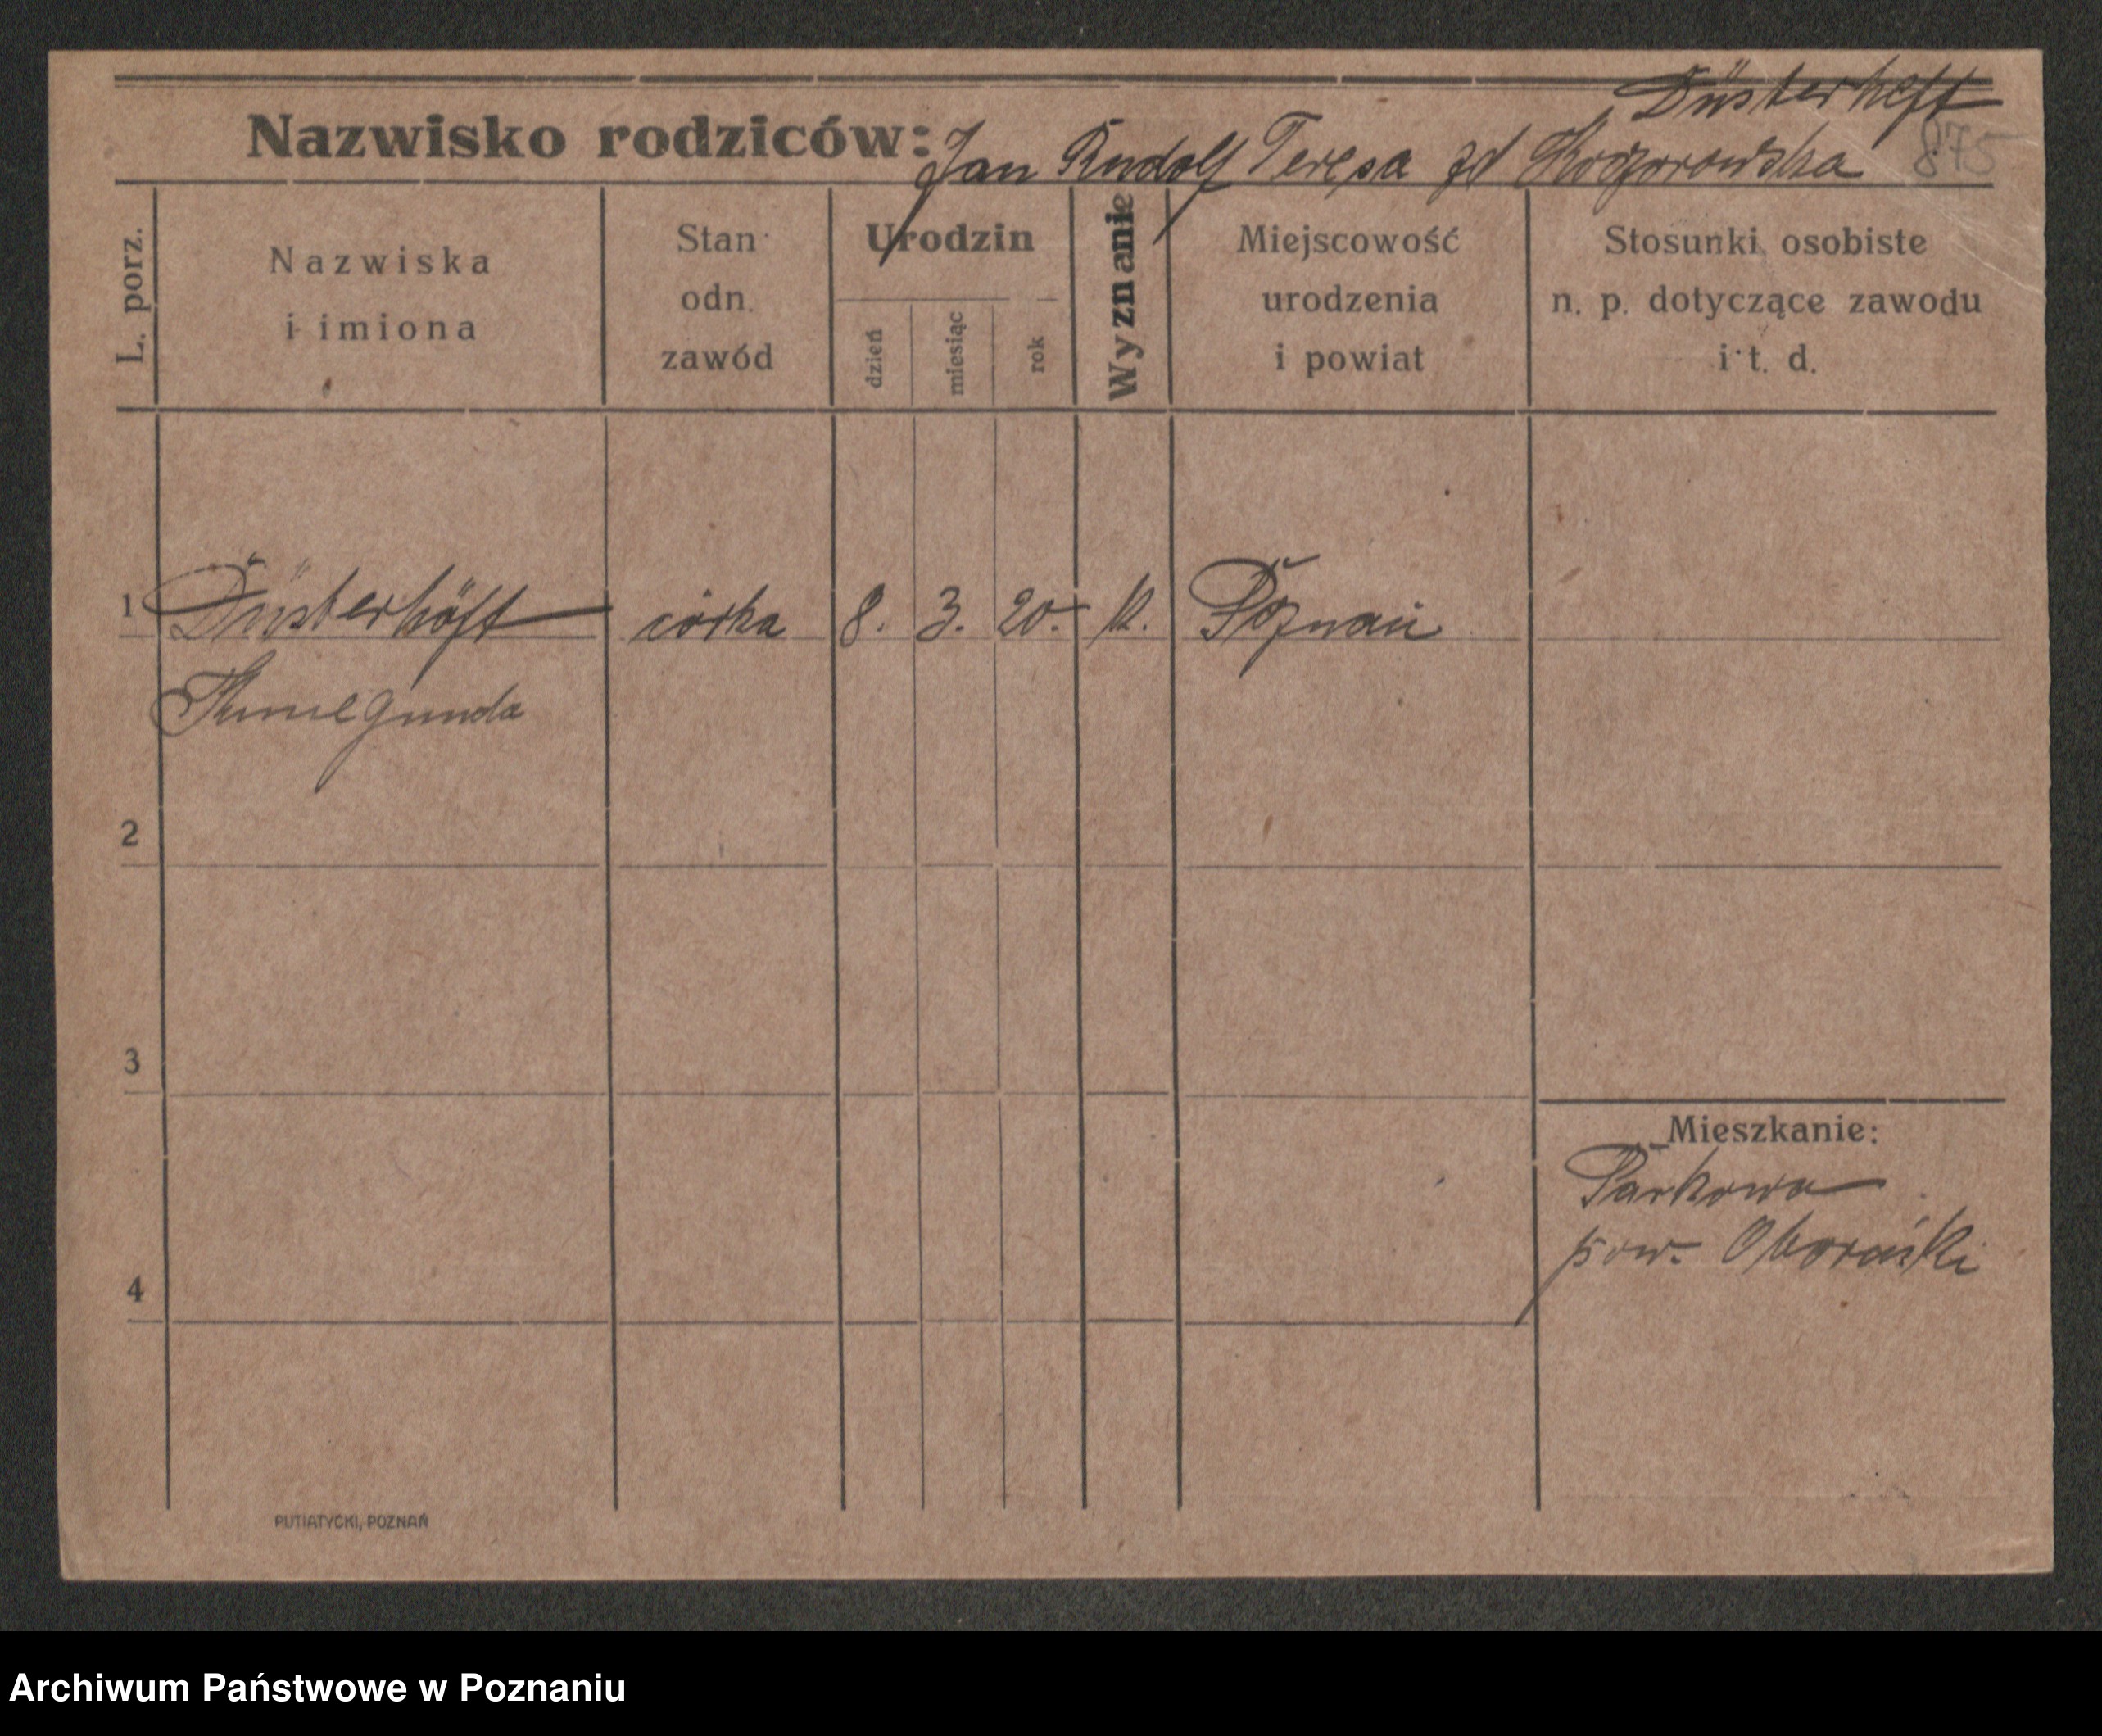 Düsterhöft
Nazwisko rodziców: Jan Rudolf Teresa zd
875
L. porz.
Nazwiska
i imiona
Stan
odn.
zawód
Urodzin
dzień
miesiąc
rok
Wyznanie
Miejscowość
urodzenia
i powiat
Stosunki osobiste
n. p. dotyczące zawodu
i t. d.
1 Düsterhöft córka 8. 3. 20. K. Poznań
Kunegunda
2
3
Mieszkanie:
Parkowa
pow. Obornicki
4
PUTIATYCKI, POZNAŃ
Archiwum Państwowe w Poznaniu